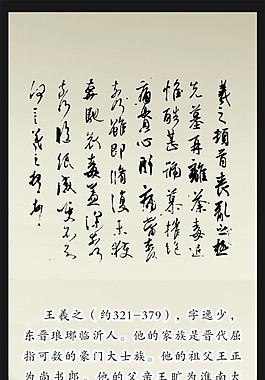 羲之頓首喪亂之極
先墓再離荼毒追
惟酷甚號慕摧絕
痛貫心肝痛當奈何
奈何雖即脩復未獲
奔馳哀毒益深奈何
奈何臨紙感哽不知
何言羲之頓首頓首
王羲之（约321-379），字逸少，
东晋琅琊临沂人。他的家族是晋代屈
指可数的豪门大士族。他的祖父王正
为尚书郎。他的父亲王旷为淮南太